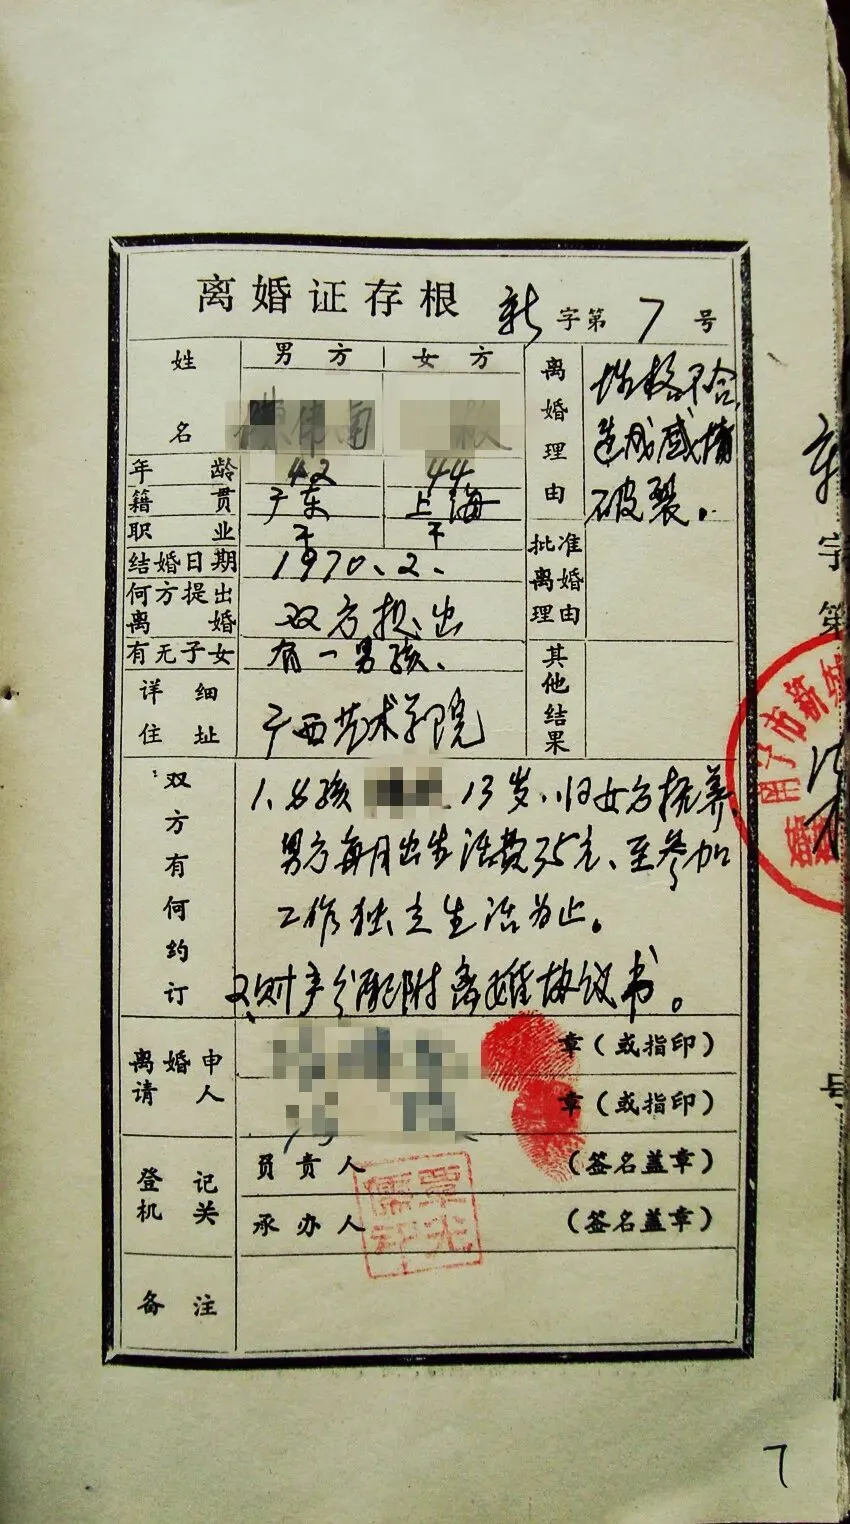 离婚证存根 新 字第 7 号
姓名 男方 女方
年龄 42 44
籍贯 广东 上海
职业 干 干
结婚日期 1970.2.
何方提出离婚 双方提出
有无子女 有一男孩.
详细住址 广西艺术学院
离婚理由 性格不合,
造成感情
破裂。
批准离婚理由
其他结果
双方有何约订
1. 男孩 13岁、归女方抚养,
男方每月出生活费35元、至参加
工作独立生活为止。
2. 财产分配附离婚协议书。
离婚申请人 章(或指印)
章(或指印)
登记机关
负责人 (签名盖章)
承办人 (签名盖章)
备注
新
字
第
号
南宁市新城
7